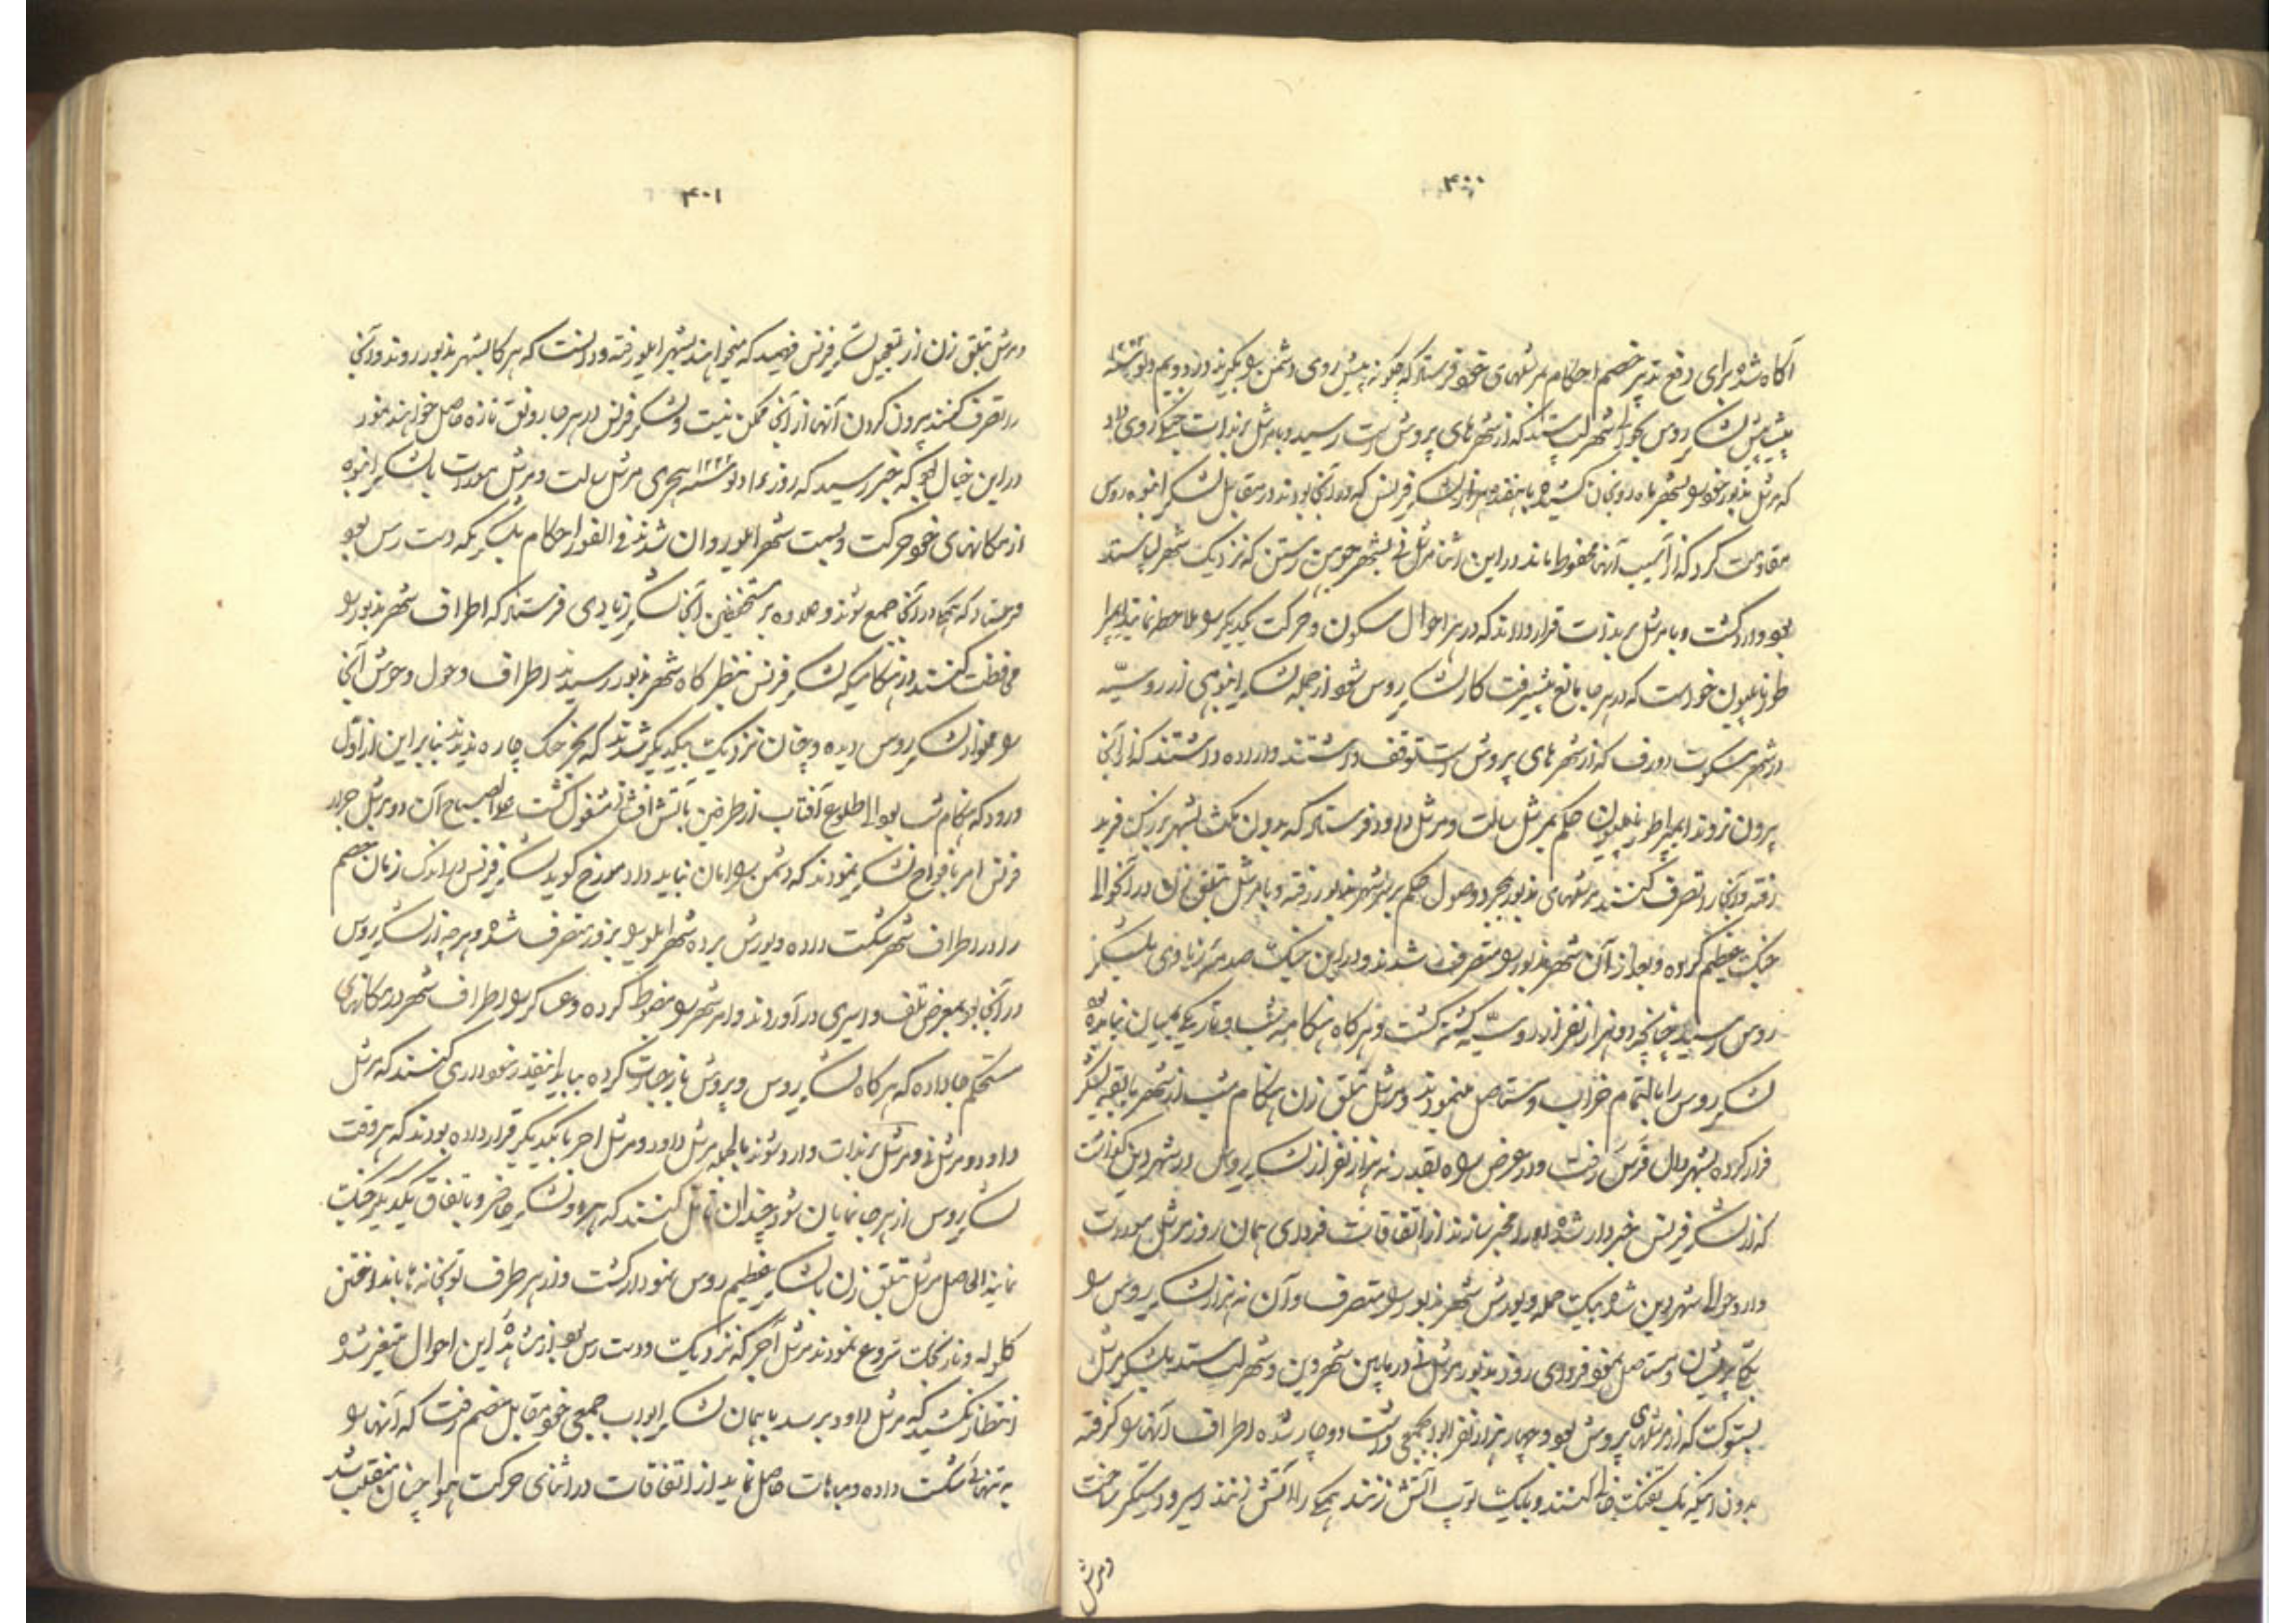 ۴۰۰
آگاه شده برای دفع تدبیر خصم احکام بمرشلهای خود فرستاد که چگونه پیش روی دشمن را بگیرند در دویم
لشکر روس بحوالی شهر که از شهرهای پروش است رسید و با مرشل برندات جنگ روی داد
که مرشل مذبور خود را بشهر کشیده با هفده هزار لشکر فرنس که در آنجا بودند در مقابل لشکر انبوه روس
مقاومت کرد که از آسیب آنها محفوظ ماند در این اثنا مرشل نی بشهر که نزدیک شهر
بود وارد گشت و با مرشل برندات قرار دادند که در هر احوال سکون و حرکت یکدیگر را ملاحظه نمایند
طور ناپلیون خواست که در هر جا مانع پیشرفت کار لشکر روس شود از جمله لشکر انبوهی از روسیّه
در شهر که از شهرهای پروش است توقف داشتند و اراده داشتند که از آنجا
بیرون روند ایمپراطور ناپلیون حکم بمرشل سالت و مرشل داود فرستاد که بدون مکث بشهر
رفته و آنجا را تصرف کنند مرشلهای مذبور بمجرد وصول حکم بر سر شهر مذبور رفته و با مرشل بنلق زن در آنحوالی
جنگ عظیم کرده و بعد از آن شهر مذبور را متصرف شدند و در این جنگ صدمهٔ زیادی بلشکر
روس رسید چنانچه دو هزار نفر از روسیّه کشته گشت و هر گاه هنگامه شب و تاریکی بمیان نیامده بود
لشکر روس را بالتمام خراب و مستأصل مینمودند و مرشل بنلق زن هنگام شب از شهر با بقیه لشکر
فرار کرده بشهر رفت و در عرض راه بقدر نه هزار نفر از لشکر روس در شهر گذاشت
که از لشکر فرنس خبردار شده او را مخبر سازند از اتفاقات فردای همان روز مرشل مورت
وارد حوالی شهر شده بیک حمله و یورش شهر مذبور را متصرف و آن نه هزار لشکر روس را
پریشان و مستأصل نمود فردای روز مذبور مرشل نی در مابین شهر و شهر با لشکر مرشل
که از مرشلهای پروش بود و چهار هزار نفر ابواب جمعی داشت دوچار شده اطراف آنها را گرفته
بدون اینکه یک تفنگ خالی کنند و یا یک توپ آتش زنند همگی را اسیر و دستگیر ساخت
ومرشل
۴۰۱
ومرشل بنلق زن از تعجیل لشکر فرنس فهمید که میخواهند بشهر ایلو رفته و دانست که هر گاه بشهر مذبور روند و آنجا
را تصرف کنند بیرون کردن آنها از آنجا ممکن نیست و لشکر فرنس در هر جا رونق تازه حاصل خواهند نمود
در این خیال بود که خبر رسید که روز سنه ۱۲۲۲ هجری مرشل سالت و مرشل مورات با لشکر انبوه
از مکانهای خود حرکت و بسمت شهر ایلو روان شدند فی الفور احکام بلشکریکه دست رس بود
فرستاد که همگی در آنجا جمع شوند و علاوه بر مستحفظین آنجا لشکر زیادی فرستاد که اطراف شهر مذبور را
محافظت کنند در هنگامیکه لشکر فرنس بنظرگاه شهر مذبور رسیدند اطراف و حول و حوش آنجا
را مملو از لشکر روس دیده و چنان نزدیک بیکدیگر شدند که بجز جنگ چاره ندیدند بنابر این از اوّل
ورود که هنگام شب بود الی طلوع آفتاب از طرفین بآتش افشانی مشغول گشت علی الصباح آن دو مرشل جرار
فرنس امر بافواج لشکر نمودند که دشمن را امان نباید داد مورخ گوید لشکر فرنس در اندک زمان خصم
را در اطراف شهر شکست داده و یورش برده شهر ایلو را بزور متصرف شده و هر چه از لشکر روس
در آنجا بود بمعرض تلف و اسیری در آوردند و امر شهر را مضبوط کرده و عساکر را در اطراف شهر در مکانهای
مستحکم جا داده که هر گاه لشکر روس و پروش باز جسارت کرده بیاید اینقدر خودداری کنند که مرشل
داود و مرشل نی و مرشل برندات وارد شوند بالجمله مرشل داود و مرشل اجر با یکدیگر قرار داده بودند که هر وقت
لشکر روس از هر جا نمایان شود چندان تأمل کنند که هر دو لشکر حاضر و باتفاق یکدیگر جنگ
نمایند الحاصل مرشل بنلق زن با لشکر عظیم روس نمودار گشت و از هر طرف توپخانه ها بانداختن
گلوله و نارنجک شروع نمودند مرشل اجر که نزدیک و دست رس بود از مشاهدهٔ این احوال متغیر شده
انتظار نکشید که مرشل داود برسد با همان لشکر ابواب جمعی خود مقابل خصم رفت که آنها را
به تنهائی شکست داده و مباهات حاصل نماید از اتفاقات در اثنای حرکت هوا چنان منقلب شد